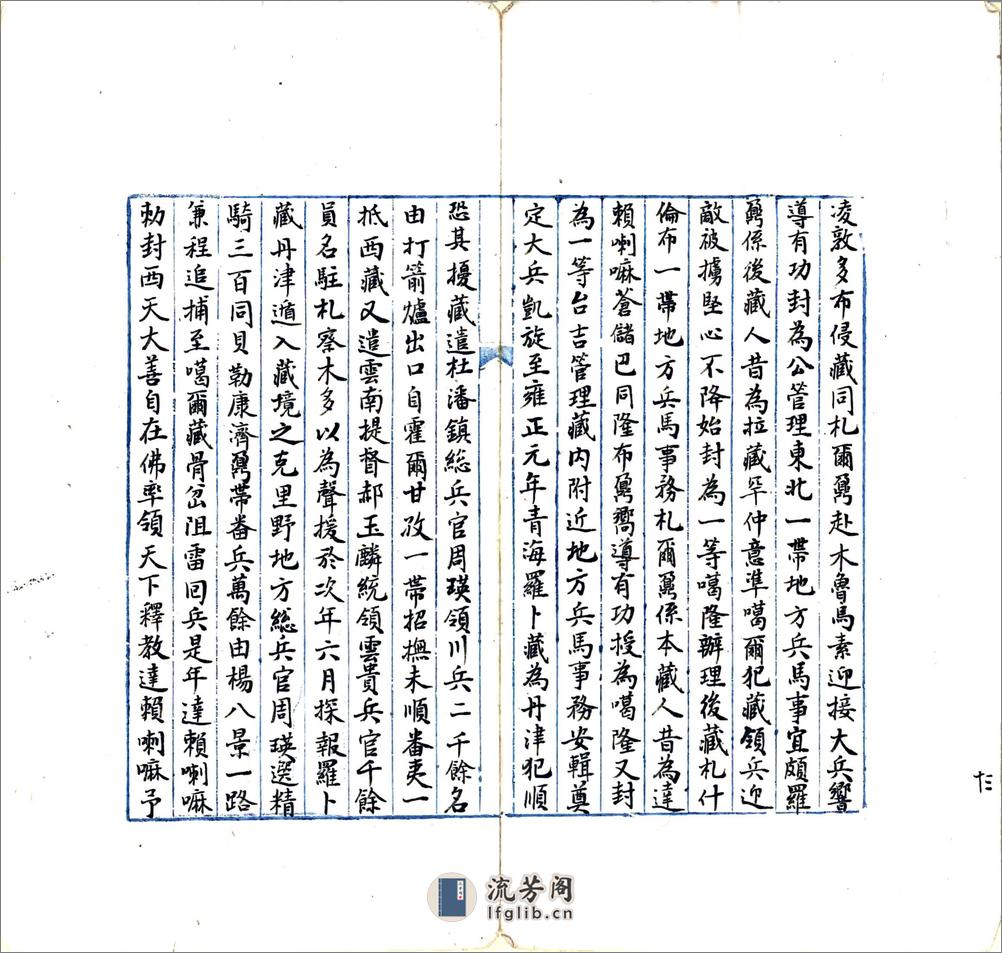 凌敦多布侵藏同札爾鼐赴木魯馬素迎接大兵響
導有功封為公管理東北一帶地方兵馬事宜頗羅
鼐係後藏人昔為拉藏罕仲意準噶爾犯藏領兵迎
敵被擄堅心不降始封為一等噶隆辦理後藏札什
倫布一帶地方兵馬事務札爾鼐係本藏人昔為達
賴喇嘛蒼儲巴同隆布鼐嚮導有功授為噶隆又封
為一等台吉管理藏內附近地方兵馬事務安輯奠
定大兵凱旋至雍正元年青海羅卜藏為丹津犯順
恐其擾藏遣杜潘鎮総兵官周瑛領川兵二千餘名
由打箭爐出口自霍爾甘孜一帶招撫未順番夷一
抵西藏又遣雲南提督郝玉麟統領雲貴兵官千餘
員名駐札察木多以為聲援於次年六月探報羅卜
藏丹津遁入藏境之克里野地方総兵官周瑛選精
騎三百同貝勒康濟鼐帶番兵萬餘由楊八景一路
兼程追捕至噶爾藏骨岔阻雷回兵是年達賴喇嘛
勅封西天大善自在佛率領天下釋教達賴喇嘛予
流芳阁
lfglib.cn